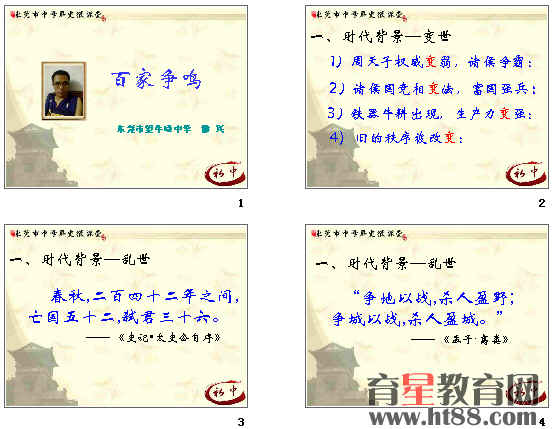 东莞市中学历史微课堂
百家争鸣
东莞市望牛墩中学
初中
1
东莞市中学历史微课堂
一、时代背景—变世
1）周天子权威变弱，诸侯争霸；
2）诸侯国竞相变法，富国强兵；
3）铁器牛耕出现，生产力变强；
4）旧的秩序被改变；
初中
2
东莞市中学历史微课堂
一、时代背景—乱世
春秋,二百四十二年之间,
亡国五十二,弑君三十六。
——《史记•太史公自序》
初中
3
东莞市中学历史微课堂
一、时代背景—乱世
“争地以战,杀人盈野;
争城以战,杀人盈城。”
——《孟子·离娄》
初中
4
育星教育网
www.ht88.com